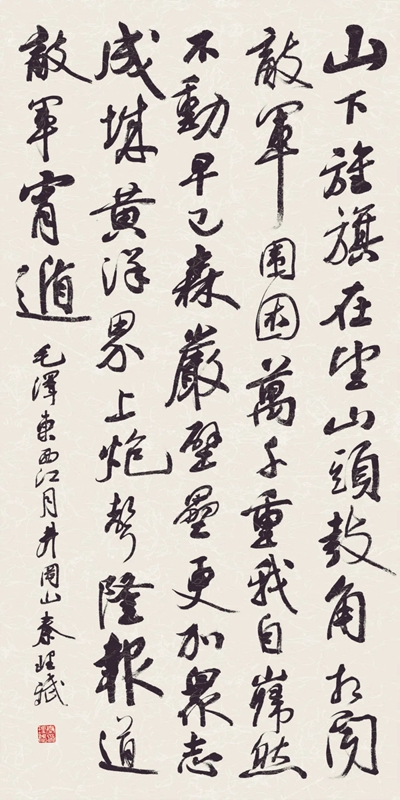 山下旌旗在望山頭鼓角相聞
敵軍围困萬千重我自巋然
不動早已森嚴壁壘更加眾志
成城黃洋界上炮聲隆報道
敵軍宵遁
毛澤東西江月井岡山秦